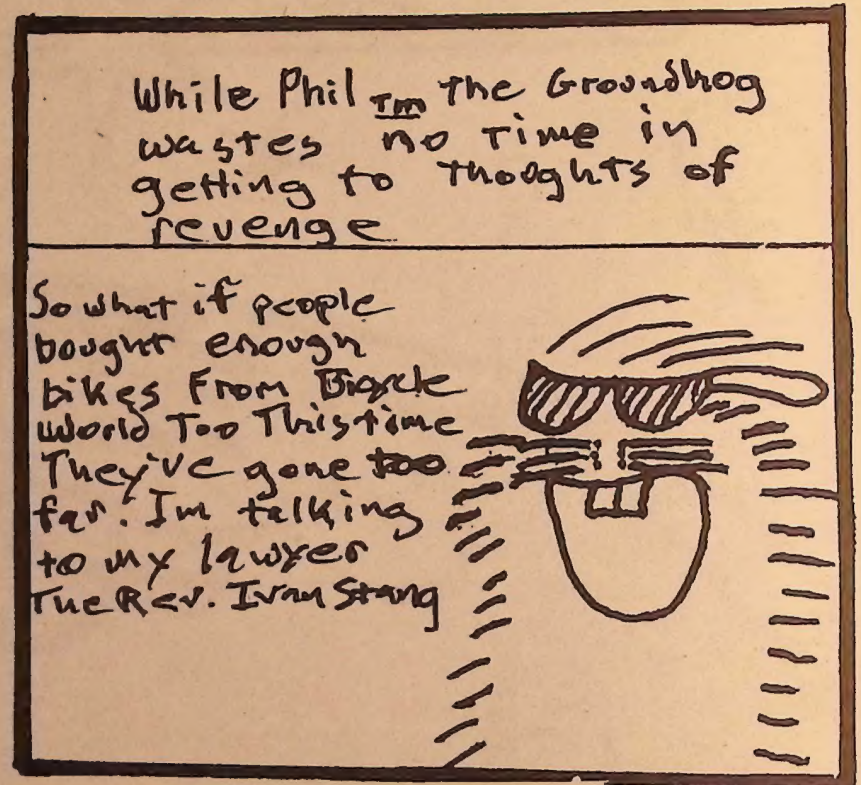 While Phil TM the Groundhog
wastes no Time in
getting to Thoughts of
revenge
So what if people
bought enough
bikes From Bicycle
World Too This time
They've gone too
far. Im talking
to my lawyer
The Rev. Ivan Stang